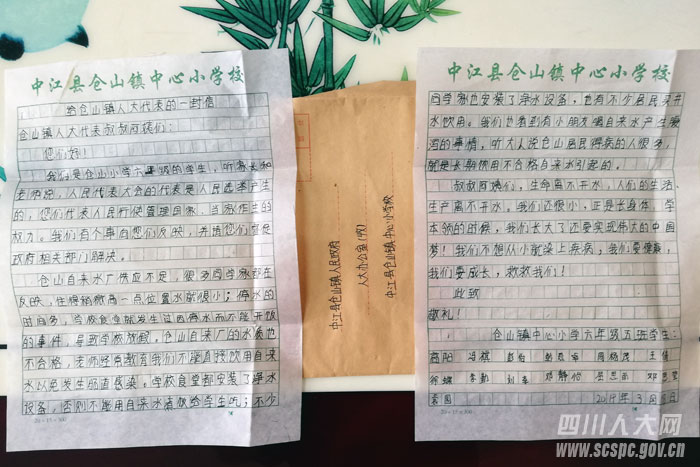 中江县仓山镇中心小学校
给仓山镇人大代表的一封信
仓山镇人大代表叔叔阿姨们：
您们好！
我们是仓山小学六年级的学生，听家长和
老师说，人民代表大会的代表是人民选举产生
的，您们代表人民行使管理国家、当家作主的
权力。我们有个事向您们反映，并请您们督促
政府相关部门解决。
仓山自来水厂供应不足，很多同学家都在
反映，住得稍微高一点位置水就很小；停水的
时间多，学校食堂就发生过因停水而不能开饭
的事件，导致学校放假。仓山自来厂的水质也
不合格，老师经常教育我们不能直接饮用自来
水以免发生肠道感染。学校食堂都安装了净水
设备，否则不能用自来水造饭给学生吃；不少
中江县仓山镇人民政府
人大办公室(收)
中江县仓山镇中心小学校
中江县仓山镇中心小学校
同学家也安装了净水设备，也有不少居民买井
水饮用。我们也看到有小朋友喝自来水产生腹
泻的事情，听大人说仓山居民得病的人很多，
就是长期饮用不合格自来水引起的。
叔叔阿姨们，生命离不开水，人们的生活、
生产离不开水，我们还很小，正是长身体、学
本领的时候，我们长大了还要实现伟大的中国
梦！我们不想从小就染上疾病，我们要健康，
我们要成长，救救我们！
此致
敬礼！
仓山镇中心小学六年级五班学生：
2019年3月
四川人大网
www.scspc.gov.cn